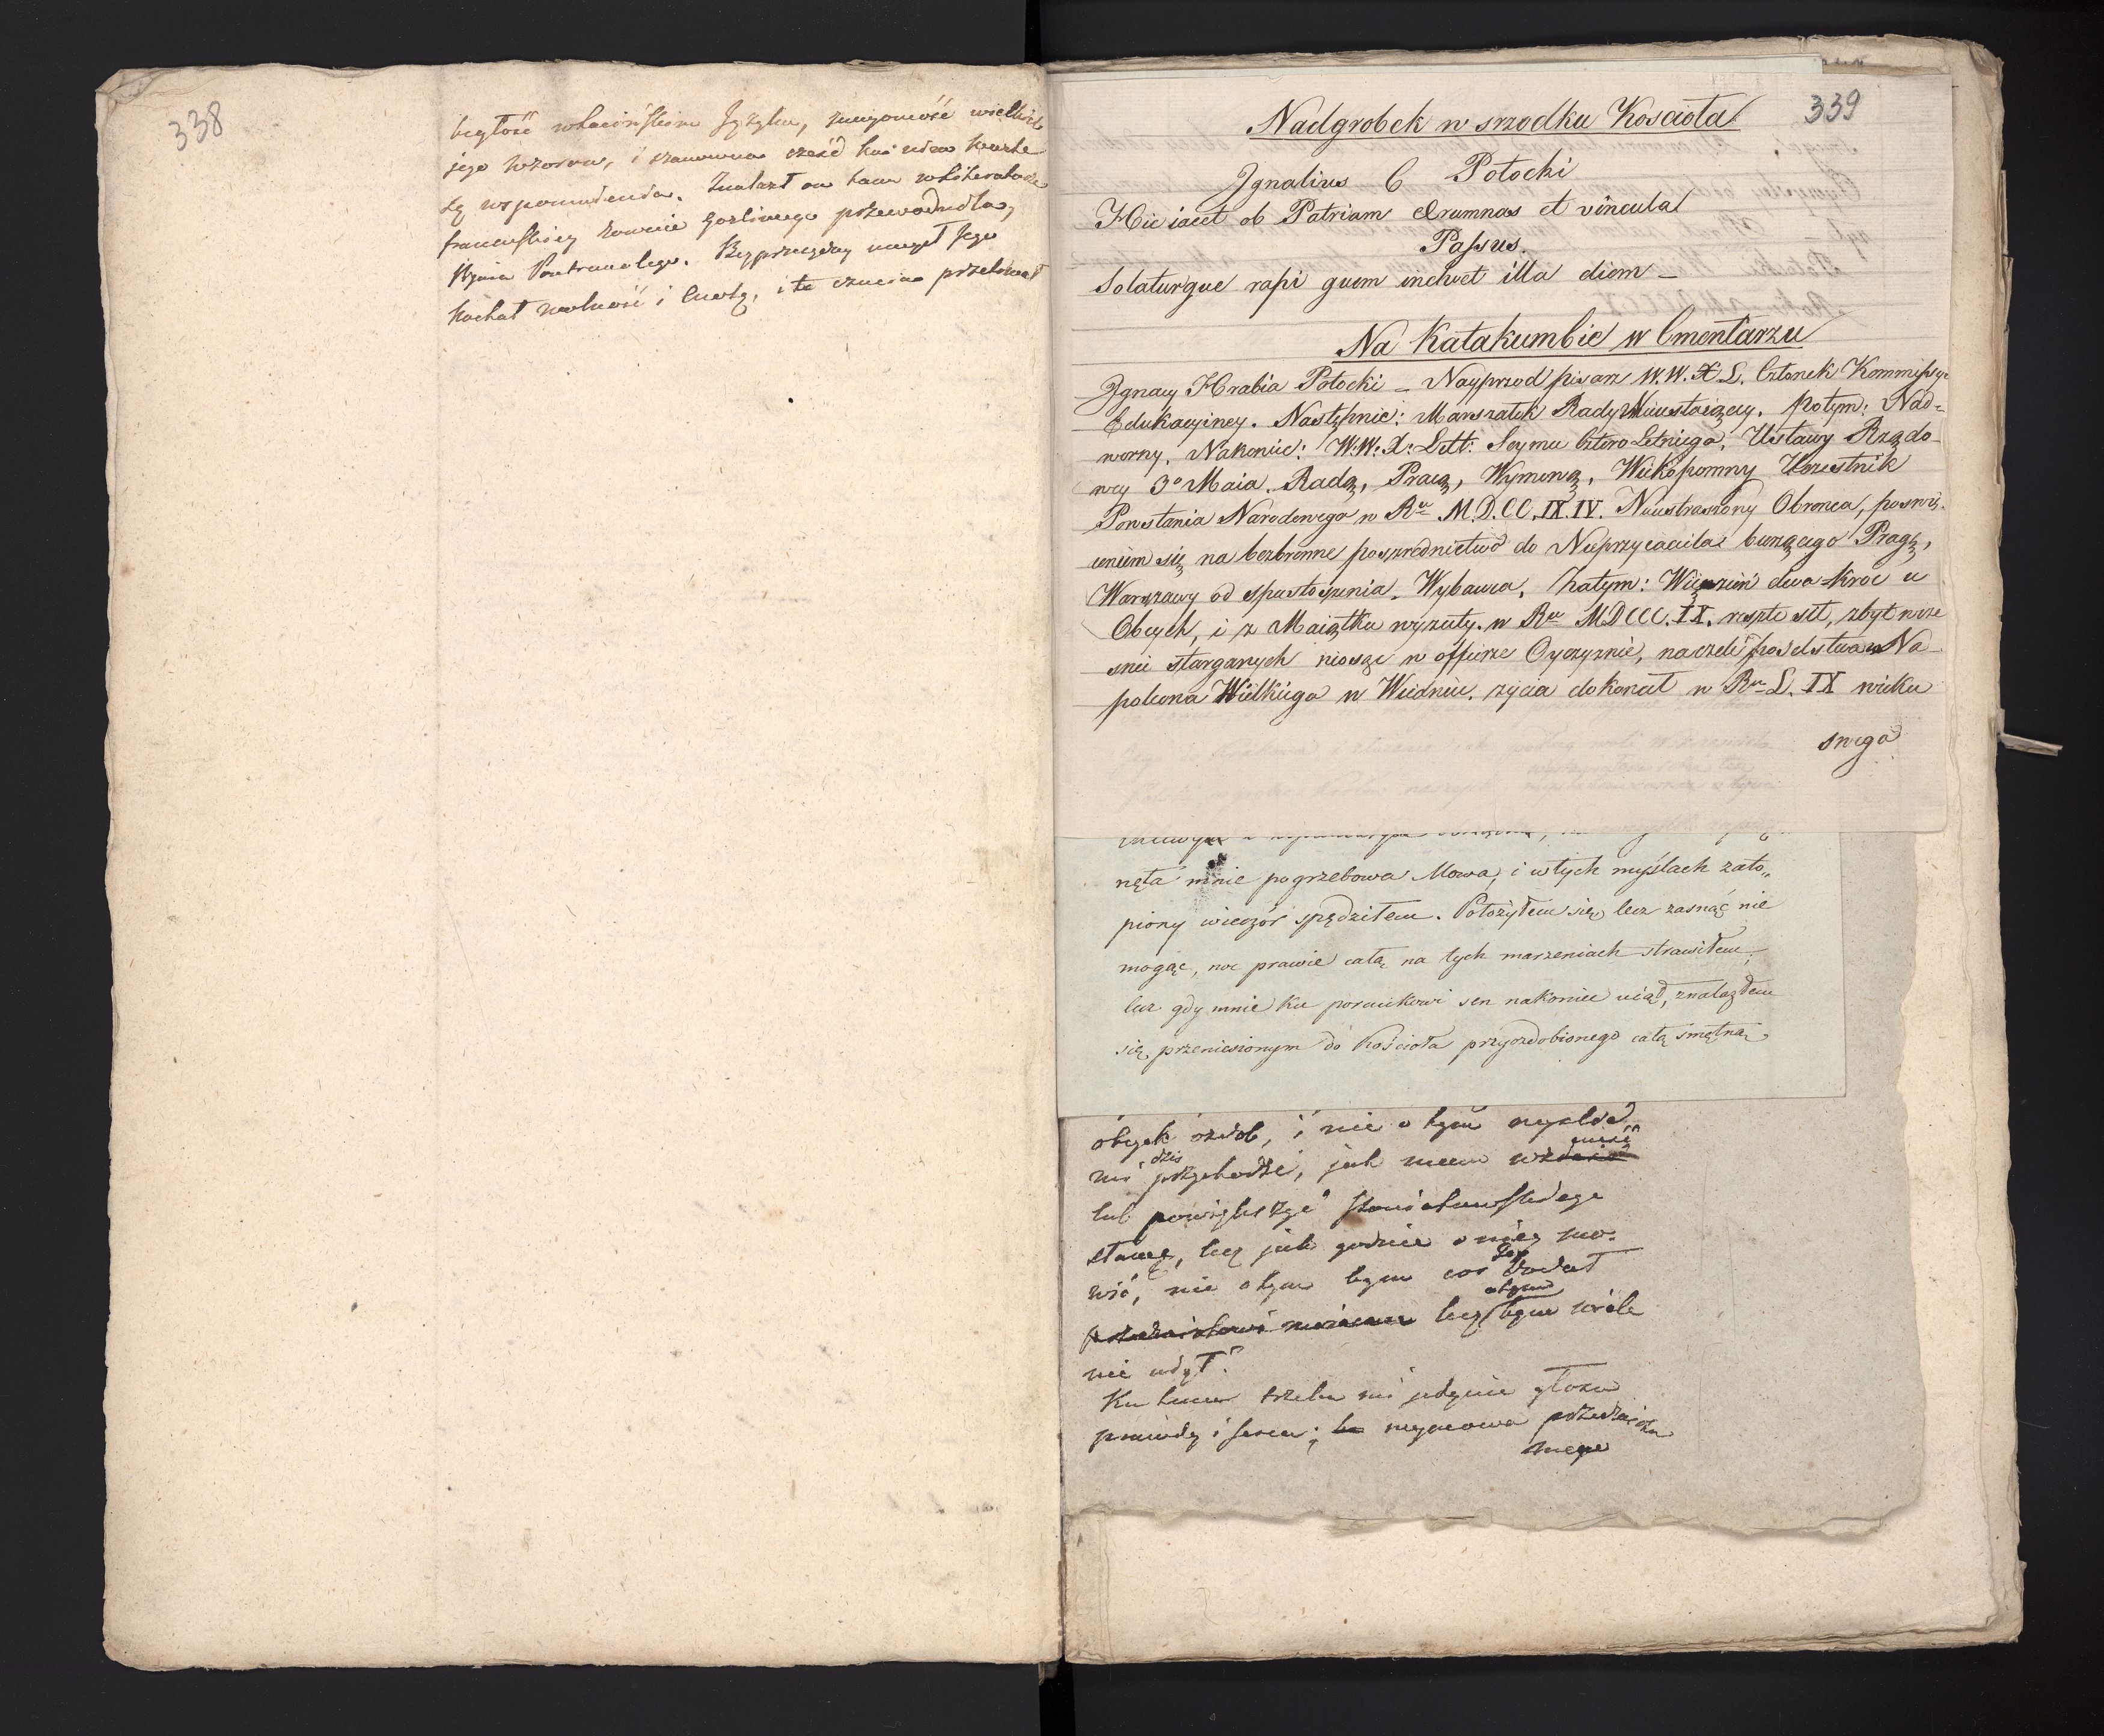 338
biegłość włacińskim Języku, znajomość wielkich
jego wzorow, i szanowna cześć
wspomnienia. Znalazł on tam wliteraturze
francuskiey rownie gorliwego przewodnika,
Xędza
kochał wolność i cnotę, i te czucia przelewał
339
Nadgrobek w srzodku Koscioła
Ignatius C Potocki
Hic iacet ob Patriam Ærumnas et vincula
Passus.
Solaturque rapi quem inchoet illa diem _
Na Katakumbie w Cmentarzu
Ignacy Hrabia Potocki _ Nayprzod pisarz W. W. X L. Członek Kommissyi
Edukacyiney. Następnie: Marszałek Rady Nieustaiącey. Potym: Nad=
worny. Nakoniec: W: W: X: Litt: Seymu Cztero Letniego, Ustawy Rządo-
wey 3º Maia. Radą, Pracą, Wymową, Wiekopomny Uczestnik
Powstania Narodowego w Ru M.D.CC.IX.IV. Nieustraszony Obronca, poswię.
ceniem się na bezbronne poszrednictwo do Nieprzyiaciela burzącego Pragę,
Warszawy od spustoszenia. Wybawca. Zatym: Więzień dwa-kroc u
Obcych, i z Maiątku wyzuty. w Ru MDCCC.IX. resztę sił, zbyt wcze
snie starganych niosąc w offierze Oyczyznie, na czele poselstwa w Na-
poleona Wielkiego w Wiedniu. życia dokonał w Ru L. IX wieku
swego
nęła mnie pogrzebowa Mowa, i wtych myślach zato„
piony wieczór spędziłem. Położyłem się, lecz zasnąć nie
mogąc, noc prawie całą na tych marzeniach strawiłem,
lecz gdy mnie ku porankowi sen nakoniec uiął, znalazłem
się przeniesionym do Kościoła przyozdobionego całą smętną
obcych ozdob, i nie o tym myslić
mi dziś przychodzi, jak mam wznieść
lub powiększyć Stanisławskiego
sławę, lecz jak godnie o niey mo-
wić, nie o tym bym coś Jey dodał
lecz o tym bym wiele
nie ujął.
Ku temu trzeba mi jedynie głosu
prawdy i serca; wymowa
mego